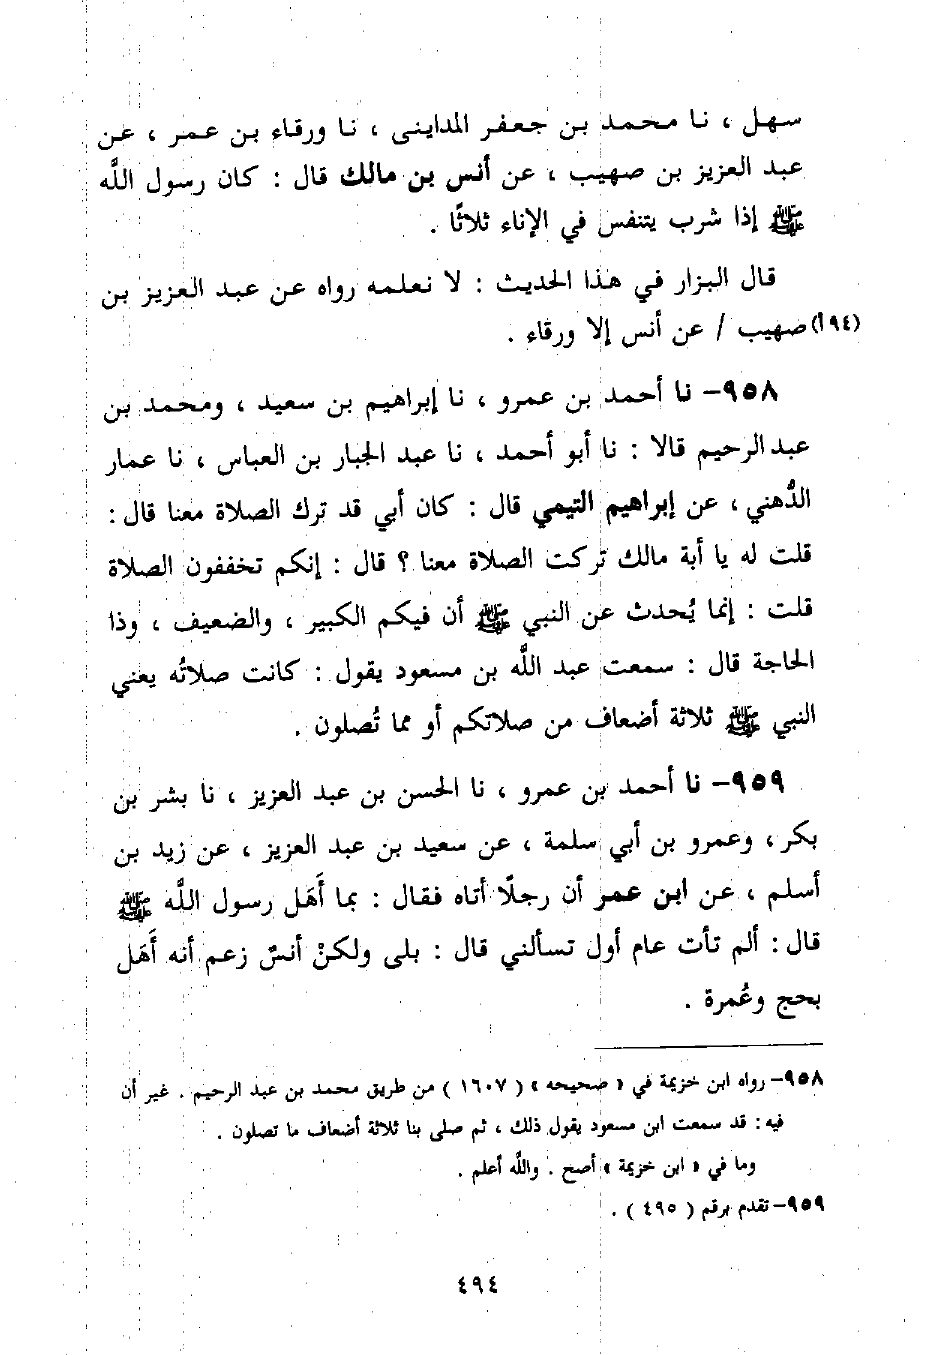 سهل ، نا محمد بن جعفر المدايني ، نا ورقاء بن عمر ، عن
عبد العزيز بن صهيب ، عن أنس بن مالك قال : كان رسول اللَّه
ﷺ إذا شرب يتنفس في الإناء ثلاثًا .
قال البزار في هذا الحديث : لا نعلمه رواه عن عبد العزيز بن
(١٩٤أ) صهيب / عن أنس إلا ورقاء .
٩٥٨- نا أحمد بن عمرو ، نا إبراهيم بن سعيد ، ومحمد بن
عبد الرحيم قالا : نا أبو أحمد ، نا عبد الجبار بن العباس ، نا عمار
الدُّهني ، عن إبراهيم التيمي قال : كان أبي قد ترك الصلاة معنا قال :
قلت له يا أبة مالك تركت الصلاة معنا ؟ قال : إنكم تخففون الصلاة
قلت : إنما يُحدث عن النبي ﷺ أن فيكم الكبير ، والضعيف ، وذا
الحاجة قال : سمعت عبد اللَّه بن مسعود يقول : كانت صلاتُه يعني
النبي ﷺ ثلاثة أضعاف من صلاتكم أو مما تُصلون .
٩٥٩- نا أحمد بن عمرو ، نا الحسن بن عبد العزيز ، نا بشر بن
بكر ، وعمرو بن أبي سلمة ، عن سعيد بن عبد العزيز ، عن زيد بن
أسلم ، عن ابن عمر أن رجلًا أتاه فقال : بما أَهَل رسول اللَّه ﷺ
قال : ألم تأت عام أول تسألني قال : بلى ولكنْ أنسٌ زعم أنه أَهَل
بحج وعُمرة .
٩٥٨- رواه ابن خزيمة في « صحيحه » ( ١٦٠٧ ) من طريق محمد بن عبد الرحيم . غير أن
فيه : قد سمعت ابن مسعود يقول ذلك ، ثم صلى بنا ثلاثة أضعاف ما تصلون .
وما في « ابن خزيمة » أصح . واللَّه أعلم .
٩٥٩- تقدم برقم ( ٤٩٥ ) .
٤٩٤